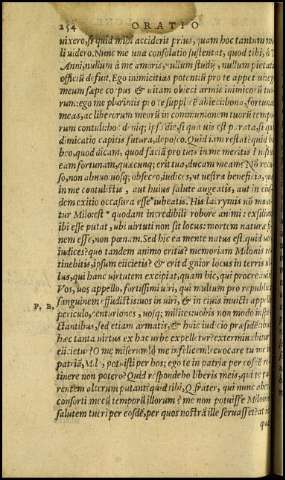 254 ORATIO
uixero, si quid mihi acciderit prius, quàm hoc tantum m
li uidero. Nunc me una consolatio sustentat, quod tibi, ô T.
Anni, nullum à me amoris, nullum studij, nullum pietatis
officiũ defuit. Ego inimicitias potentiũ pro te appetiui: ego
meum sæpe corpus & uitam obieci armis inimicorũ tuo
rum: ego me plurimis pro te supplicẽ abieci: bona, fortunas
meas, ac liberorum meorũ in communionem tuorũ tempo
rum contuli: hoc deniq; ipso die, si qua uis est parata, si qua
dimicatio capitis futura, deposco. Quid iam restat? quid ha
beo, quod dicam, quod faciã pro tuis in me meritis? nisi ut
eam fortunam, quæcunq; erit tua, ducam meam? Nõ recu
so, non abnuo: uosq; obsecro iudices, ut uestra beneficia, quæ
in me contulistis, aut huius salute augeatis, aut in eiusdem
dem exitio occasura esse uideatis. His lacrymis nõ moue
tur Milo: est quodam incredibili robore animi: exsilium
ibi esse putat, ubi uirtuti non sit locus: mortem naturæ fi
nem esse, non pœnam. Sed hic ea mente natus est. quid uos
iudices? quo tandem animo eritis? memoriam Milonis re
tinebitis, ipsum eiicietis? & erit dignior locus in terris ul
lus, qui hanc uirtutem excipiat, quàm hic, qui procreauit?
Vos, uos appello, fortissimi uiri, qui multum pro republica
P. R. sanguinem effudistis: uos in uiri, & in ciuis inuicti appello
periculo, centuriones, uosq; milites: uobis non modo inspe
ctantibus, sed etiam armatis, & huic iudicio præsidẽtibus,
hæc tanta uirtus ex hac urbe expelletur? exterminabitur?
eiicietur? O me miserum! ô me infelicem! reuocare tu me in
patriã, Milo, potuisti per hos: ego te in patria per eosdẽ re
tinere non potero? Quid respondebo liberis meis, qui te pa
rentem alterum putant? quid tibi, Q. frater, qui nunc abes,
consorti mecũ temporũ illorum? me non potuisse Milonis
salutem tueri per eosdẽ, per quos nostrã ille seruasset? at in
qua